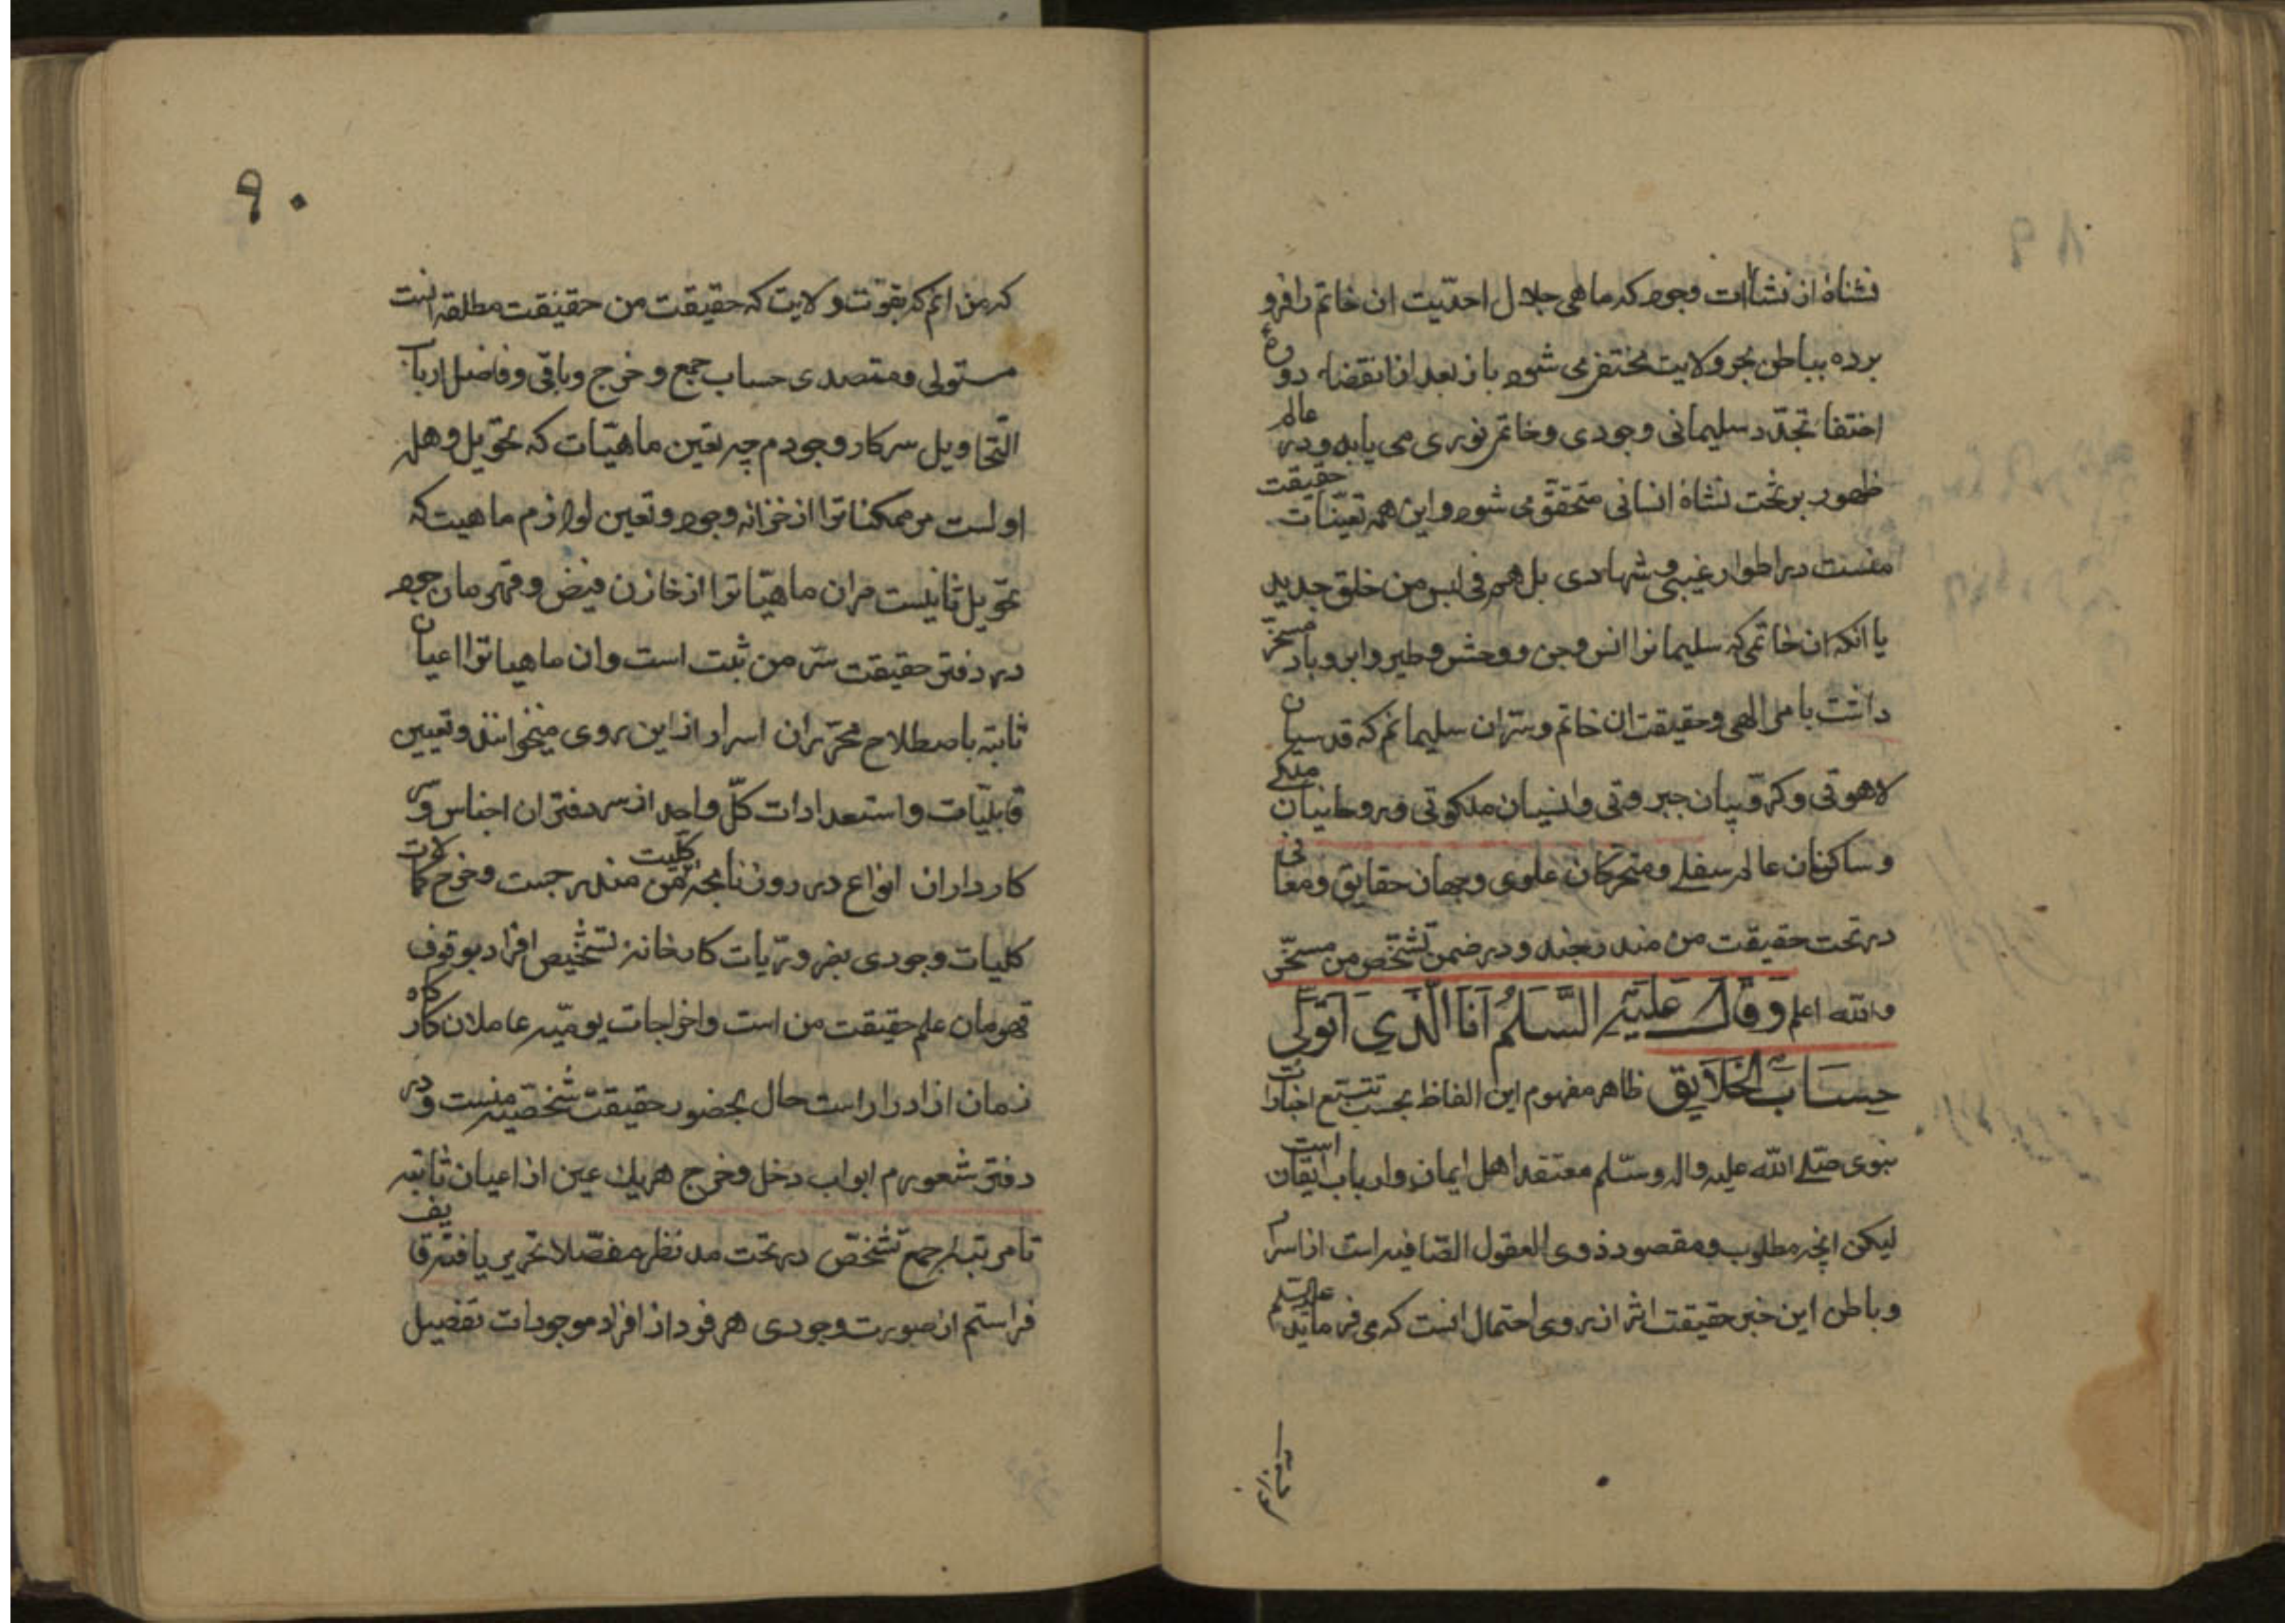 نشاهٔ از نشاات وجود که ماهی جلال احدیت ان خاتم را فرو
برده بباطن بحر ولایت مختفی می شود باز بعد از انقضاء دورهٔ
اختفا تجدد سلیمانی وجودی و خاتم نوری می یابد و در عالم
ظهور بر تخت نشاهٔ انسانی متحقق می شود و این همه تعینات حقیقت
منست در اطوار غیبی و شهادی بل هم فی لبس من خلق جدید
یا انکه ان خاتمی که سلیمانرا انس و جن و وحش و طیر و ابر و باد مسخر
داشت بامر الهی و حقیقت ان خاتم و سر ان سلیمانم که قدسیان
لاهوتی و کروبیان جبروتی و انسیان ملکوتی و روحانیان ملکی
و ساکنان عالم سفلی و متحرکان علوی و جهان حقایق و معانی
در تحت حقیقت من مندرجند و در ضمن تشخص من مسخر
والله اعلم وَقَالَ عَلَيْهِ السَّلَمُ اَنَا الَّذِي اَتَوَلَّى
حِسَابَ الْخَلَايِقِ ظاهر مفهوم این الفاظ بحسب تتبع اخبارات
نبوی صلی الله علیه واله وسلم معتقد اهل ایمان و ارباب ایقان است
لیکن انچه مطلوب و مقصود ذوی العقول الصافیه است از اسرار
و باطن این خبر حقیقت اثر از روی احتمال انست که می فرماید علیه السلم
۹۰
که من انم که بقوت ولایت که حقیقت من حقیقت مطلقه است
مستولی و متصدی حساب جمع و خرج و باقی و فاضل ارباب
التحاویل سرکار وجودم چه تعین ماهیات که تحویل وهله
اولست مر ممکناترا از خزانه وجود و تعین لوازم ماهیت که
تحویل ثانیست مر ان ماهیاترا از خازن فیض و قهرمان جود
در دفتر حقیقت سر من ثبت است و ان ماهیاترا اعیان
ثابته باصطلاح محرران اسرار از این روی میخوانند و تعیین
قابلیات و استعدادات کل واحد از سر دفتران اجناس و سر
کارداران انواع در روزنامجه کلیت من مندرجست و خرج کمالات
کلیات وجودی بضروریات کارخانهٔ تشخیص افراد بوقوف
قهرمان علم حقیقت من است و اخراجات یومیه عاملان کارکاه
زمان از ادرارات حال بحضور حقیقت شخصیه منست و در
دفتر شعورم ابواب دخل و خرج هر یك عین از اعیان ثابته
تا مرتبه جمع تشخص در تحت مد نظر مفصلا تحریر یافته
فراستم از صورت وجودی هر فرد از افراد موجودات تفصیل